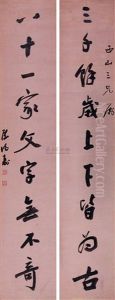 西山三兄属
三千餘歲上下皆為古
八十一家文字無不奇